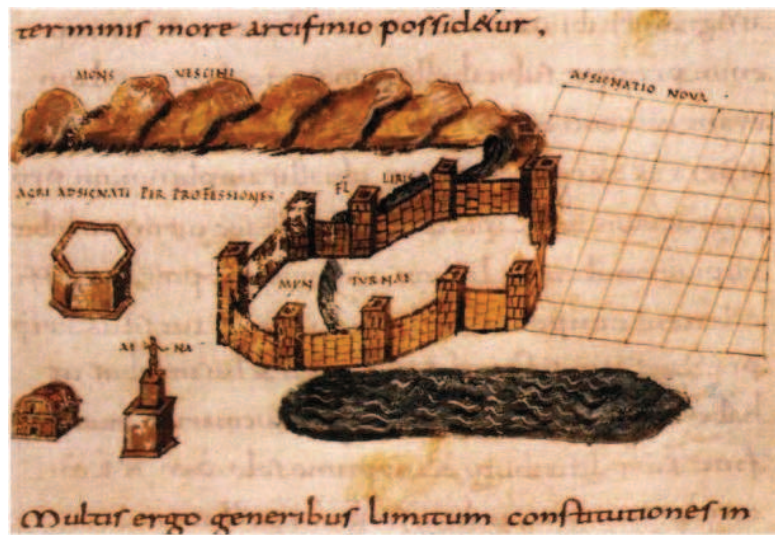 terminis more arcifinio possidetur.
MONS VESCINI
ASSIGNATIO NOVA
AGRI ADSIGNATI PER PROFESSIONES
FL LIRIS
MIN TURNAE
Multis ergo generibus limitum constitutiones in